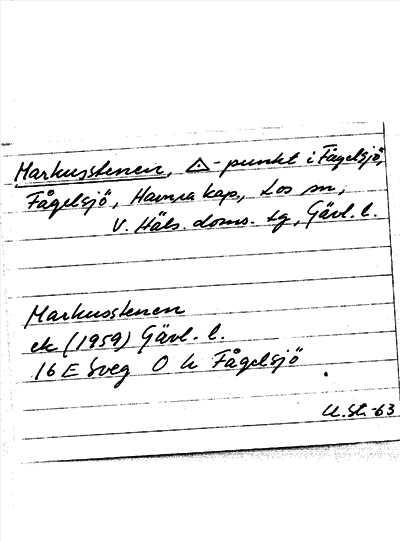 Markusstenen, △-punkt i Fågelsjö,
Fågelsjö, Hamra kap., Los sn,
V. Häls. doms. tg, Gävl. l.
Markusstenen
ek (1959) Gävl. l.
16 E Sveg O h Fågelsjö
U. St. -63